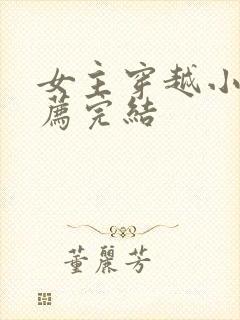 女主穿越小
薦完結
董麗芳